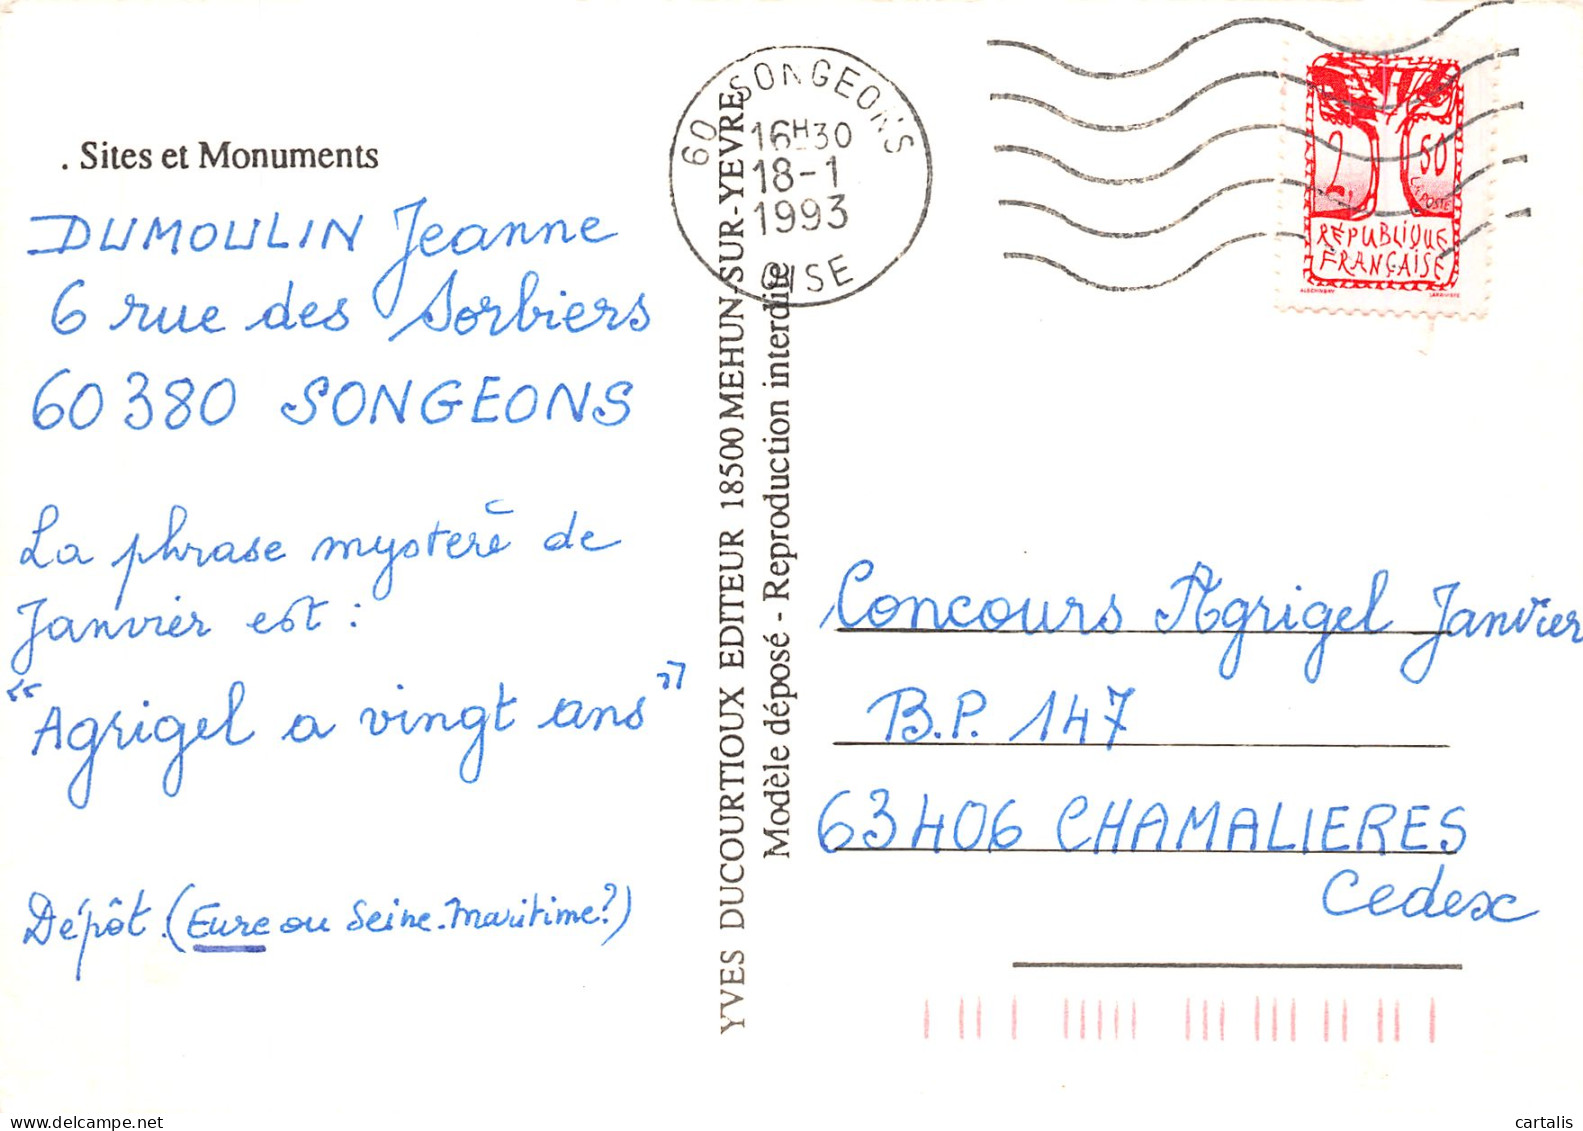 . Sites et Monuments
DUMOULIN Jeanne
6 rue des Sorbiers
60380 SONGEONS
La phrase mystère de
Janvier est :
"Agrigel a vingt ans"
Dépôt. (Eure ou Seine-Maritime?)
YVES DUCOURTIOUX EDITEUR 18500 MEHUN-SUR-YEVRE
Modèle déposé - Reproduction interdite
60 SONGEONS
16H30
18-1
1993
OISE
2,50
LA POSTE
RÉPUBLIQUE
FRANÇAISE
ALECHINSKY
Concours Agrigel Janvier
B.P. 147
63406 CHAMALIERES
Cedex
www.delcampe.net
cartalis